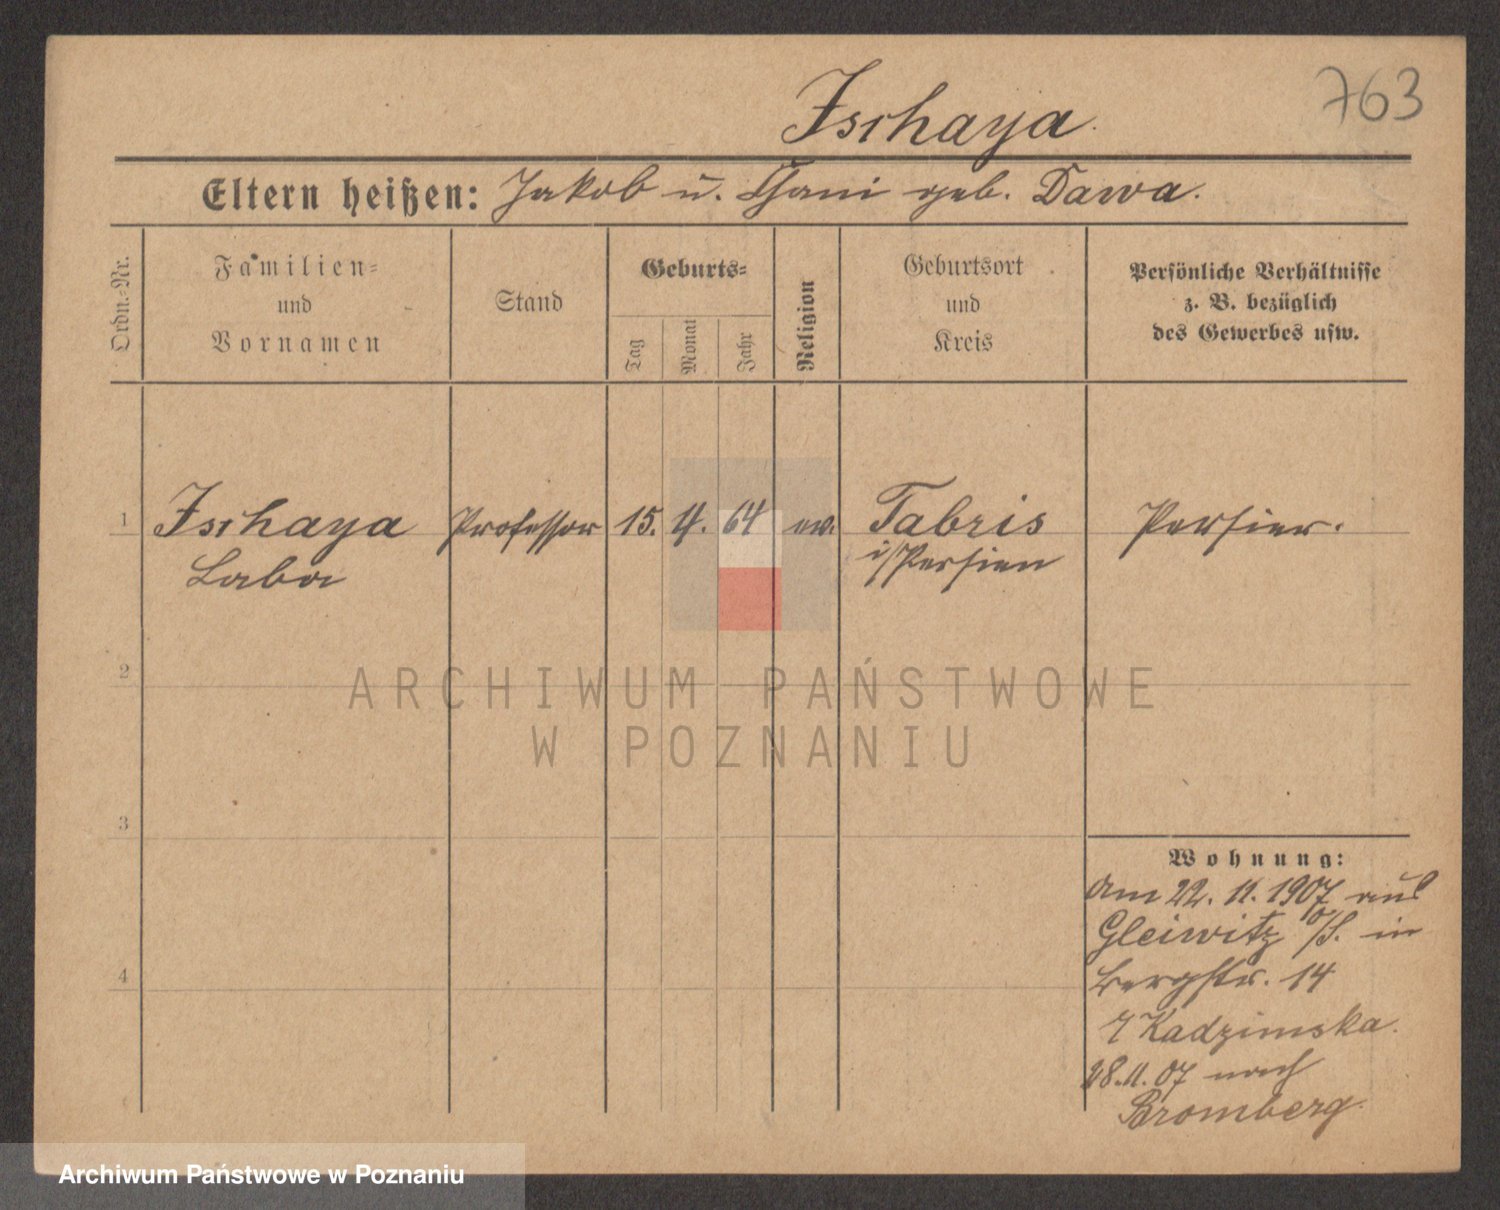 763
Ischaya.
Eltern heißen: Jakob u. Chani geb. Dawa.
Ordn.-Nr.
Familien-
und
Vornamen
Stand
Geburts-
Tag
Monat
Jahr
Religion
Geburtsort
und
Kreis
Persönliche Verhältnisse
z. B. bezüglich
des Gewerbes usw.
1 Ischaya Professor 15. 4. 64 ev. Tabris Persier.
Laba i/Persien
2
ARCHIWUM PAŃSTWOWE
W POZNANIU
3
Wohnung:
am 22. 11. 1907 aus
Gleiwitz o/S. in
Bergstr. 14
Kadzimska.
4
28. 11. 07 nach
Bromberg.
Archiwum Państwowe w Poznaniu